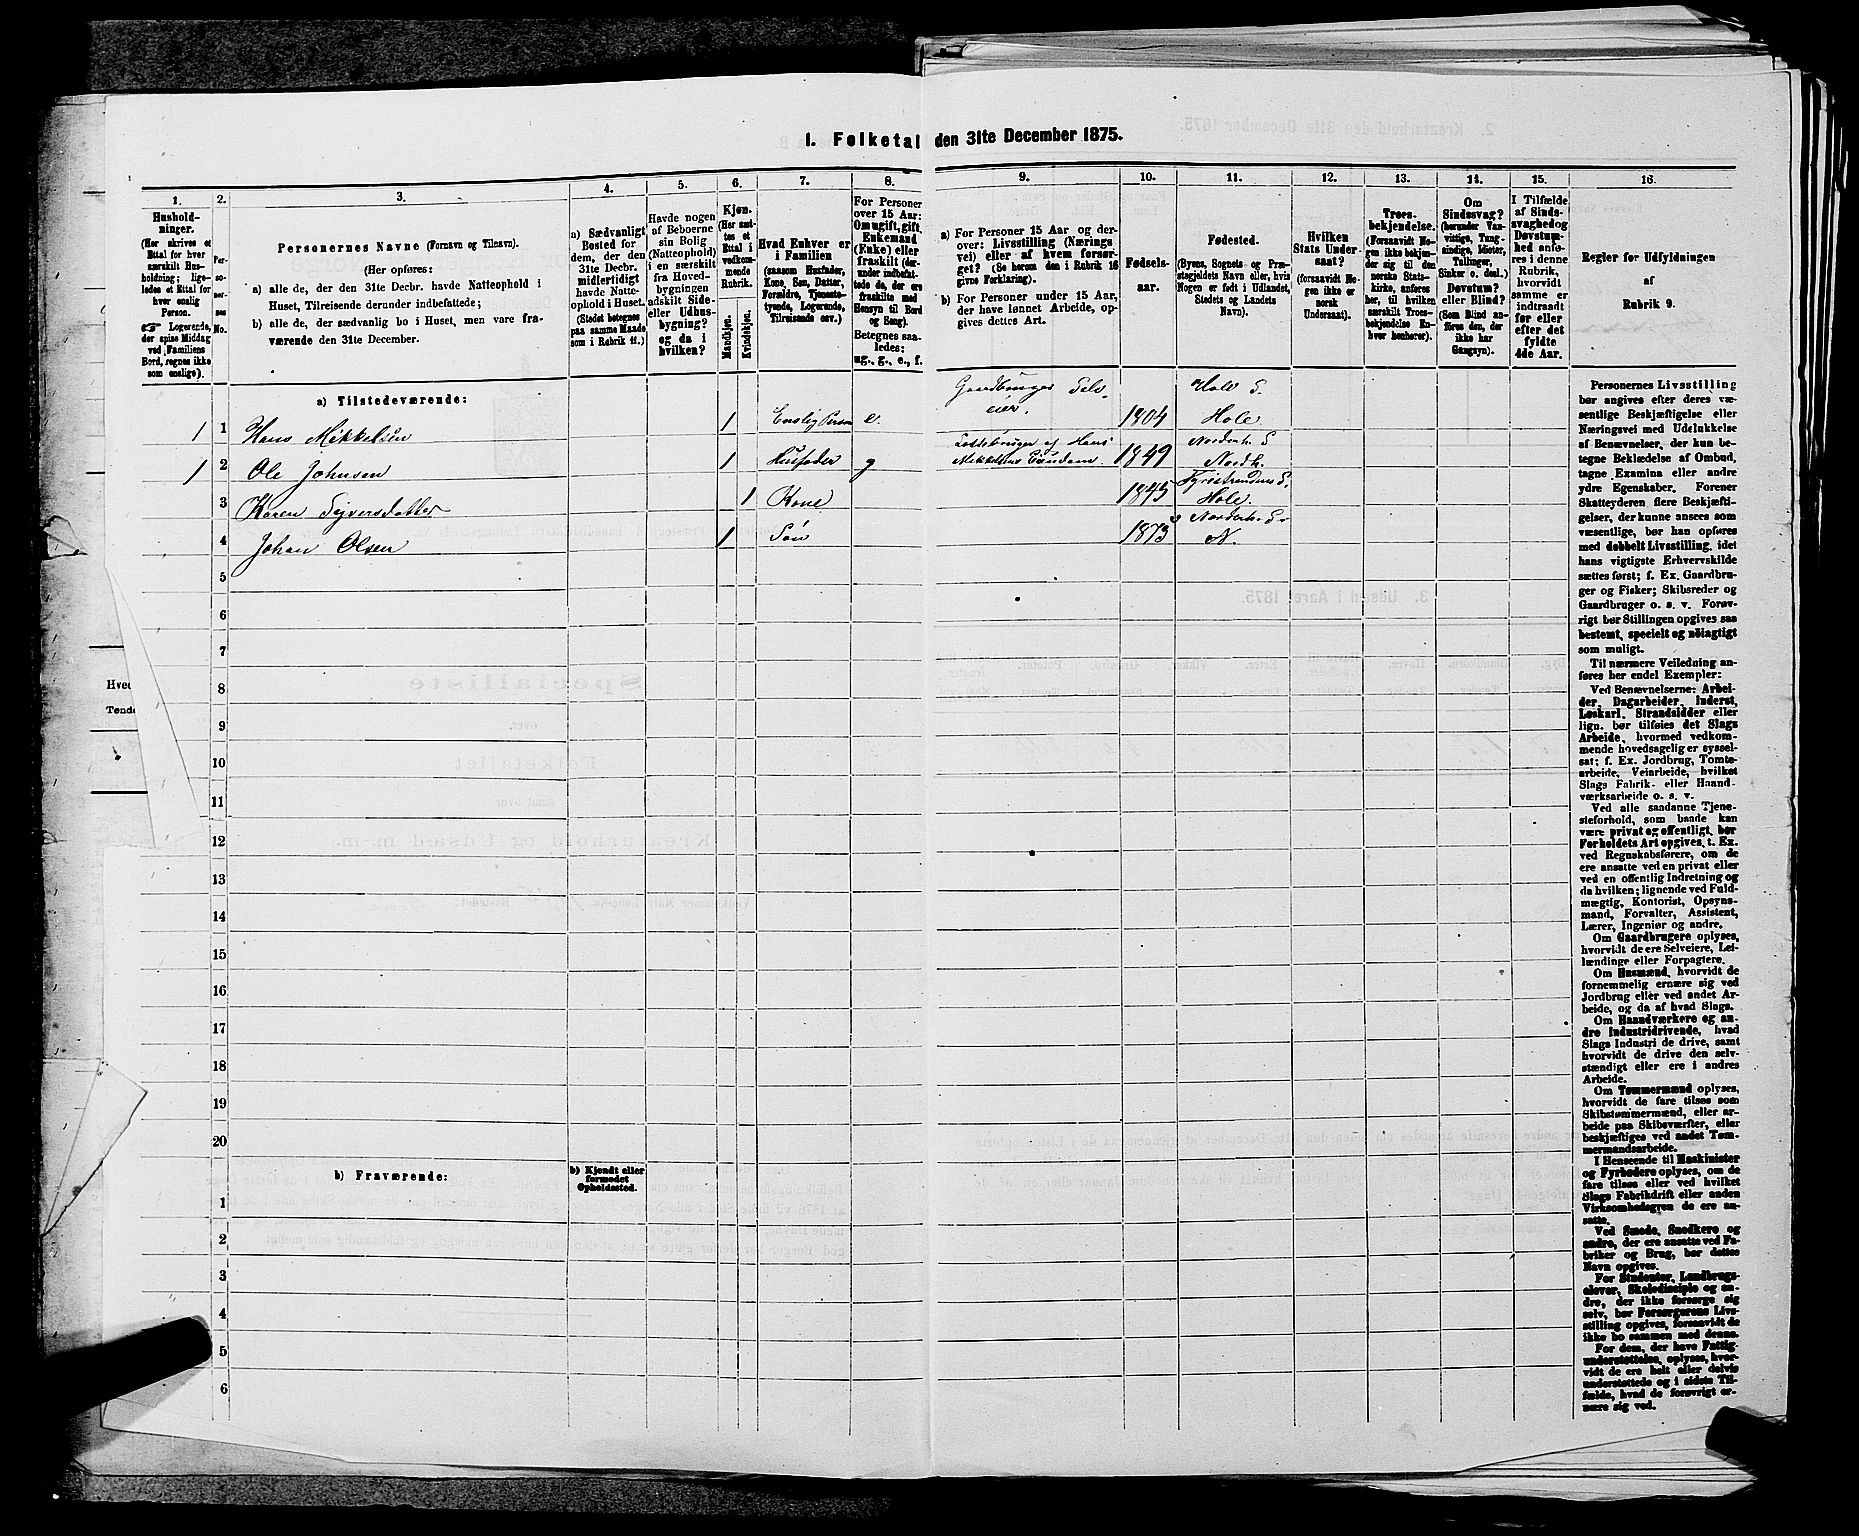 1. Folketal den 31te December 1875.
1.
Hushold-
ninger.
(Her skrives et
Ettal for hver
særskilt Hus-
holdning; lige-
ledes et Ettal for
hver enslig
Person.
☞ Logerende,
der spise Middag
ved Familiens
Bord, regnes ikke
som enslige).
2.
Per-
so-
ner-
nes
No.
3.
Personernes Navne (Fornavn og Tilnavn).
(Her opføres:
a) alle de, der den 31te Decbr. havde Natteophold i
Huset, Tilreisende derunder indbefattede;
b) alle de, der sædvanlig bo i Huset, men vare fra-
værende den 31te December.
4.
a) Sædvanligt
Bosted for
dem, der den
31te Decbr.
midlertidigt
havde Natte-
ophold i Huset.
(Stedet betegnes
paa samme Maade
som i Rubrik 11.)
5.
Havde nogen
af Beboerne
sin Bolig
(Natteophold)
i en særskilt
fra Hoved-
bygningen
adskilt Side-
eller Udhus-
bygning?
og da i
hvilken?
6.
Kjøn.
(Her sæt-
tes et
Ettal i
vedkom-
mende
Rubrik.
Mandkjøn.
Kvindekjøn.
7.
Hvad Enhver er
i Familien
(saasom Husfader,
Kone, Søn, Datter,
Forældre, Tjeneste-
tyende, Logerende,
Tilreisende osv.)
8.
For Personer
over 15 Aar:
Om ugift, gift,
Enkemand
(Enke) eller
fraskilt (der-
under indbefat-
tede de, der ere
fraskilte med
Hensyn til Bord
og Seng).
Betegnes saa-
ledes:
ug., g., e., f.
9.
a) For Personer 15 Aar og der-
over: Livsstilling (Nærings
vei) eller af hvem forsør-
get? (Se herom den i Rubrik 16
givne Forklaring).
b) For Personer under 15 Aar,
der have lønnet Arbeide, op-
gives dettes Art.
10.
Fødsels-
aar.
11.
Fødested.
(Byens, Sognets og Præ-
stegjeldets Navn eller, hvis
Nogen er født i Udlandet,
Stedets og Landets
Navn).
12.
Hvilken
Stats Under-
saat?
(forsaavidt No-
gen ikke er
norsk
Undersaat).
13.
Troes-
bekjendelse.
(Forsaavidt No-
gen ikke bekjen-
der sig til den
norske Stats-
kirke, anføres
her, til hvilken
særskilt Troes-
bekjendelse En-
hver henhører).
14.
Om
Sindssvag?
(herunder Van-
vittige, Tung-
sindige, Idioter,
Tullinger,
Sinker o. desl.)
Døvstum?
eller Blind?
(Som Blind an-
føres den, der
ikke har
Gangsyn).
15.
I Tilfælde
af Sinds-
svaghed og
Døvstum-
hed anfø-
res i denne
Rubrik,
hvorvidt
samme er
indtraadt
før eller
efter det
fyldte
4de Aar.
16.
Regler for Udfyldningen
af
Rubrik 9.
a) Tilstedeværende:
Gaardbruger Selv-
eier.
Hole S.
1 1 Hans Mikkelsen 1 Enslig Person e. 1804 Hole
Lottebruger af Hans
Norderh. S
1 2 Ole Johnsen 1 Husfader g Mikkelsens Eiendom. 1849 Nordh.
Tyristrandens S.
3 Karen Sjversdatter 1 Kone 1845 Hole.
Norderh. S
4 Johan Olsen 1 Søn 1873 N.
5
6
7
8
9
10
11
12
13
14
15
16
17
18
19
20
b) Fraværende:
b) Kjendt eller
formodet
Opholdssted.
1
2
3
4
5
6
Personernes Livsstilling
bør angives efter deres væ-
sentlige Beskjæftigelse eller
Næringsvei med Udelukkelse
af Benævnelser, der kun be-
tegne Beklædelse af Ombud,
tagne Examina eller andre
ydre Egenskaber. Forener
Skatteyderen flere Beskjæfti-
gelser, der kunne ansees som
væsentlige, bør han opføres
med dobbelt Livsstilling, idet
hans vigtigste Erhvervskilde
sættes først; f. Ex. Gaardbru-
ger og Fisker; Skibsreder og
Gaardbruger o. s. v. Forøv-
rigt bør Stillingen opgives saa
bestemt, specielt og nöiagtigt
som muligt.
Til nærmere Veiledning an-
føres her endel Exempler:
Ved Benævnelserne: Arbei-
der, Dagarbeider, Inderst,
Løskarl, Strandsidder eller
lign. bør tilføies det Slags
Arbeide, hvormed vedkom-
mende hovedsagelig er syssel-
sat; f. Ex. Jordbrug, Tomte-
arbeide, Veiarbeide, hvilket
Slags Fabrik- eller Haand-
værksarbeide o. s. v.
Ved alle saadanne Tjene-
steforhold, som baade kan
være privat og offentligt, bør
Forholdets Art opgives, t. Ex.
ved Regnskabsførere, om de
ere ansatte ved en privat eller
ved en offentlig Indretning og
da hvilken; lignende ved Fuld-
mægtig, Kontorist, Opsyns-
mand, Forvalter, Assistent,
Lærer, Ingeniør og andre.
Om Gaardbrugere oplyses,
hvorvidt de ere Selveiere, Lei-
lændinge eller Forpagtere.
Om Husmænd, hvorvidt de
fornemmelig ernære sig ved
Jordbrug eller ved andet Ar-
beide, og da af hvad Slags.
Om Haandværkere og an-
dre Industridrivende, hvad
Slags Industri de drive, samt
hvorvidt de drive den selv-
stændigt eller ere i andres
Arbeide.
Om Tømmermænd oplyses,
hvorvidt de fare tilsøs som
Skibstømmermænd, eller ar-
beide paa Skibsværfter, eller
beskjæftiges ved andet Tøm-
mermandsarbeide.
I Henseende til Maskinister
og Fyrbødere oplyses, om de
fare tilsøs eller ved hvilket
Slags Fabrikdrift eller anden
Virksomhedsgren de ere an-
satte.
Ved Smede, Snedkere og
andre, der ere ansatte ved Fa-
briker og Brug, bør dettes
Navn opgives.
For Studenter, Landbrugs-
elever, Skoledisciple og an-
dre, der ikke forsørge sig
selv, bør Forsørgerens Livs-
stilling opgives, forsaavidt de
ikke bo sammen med denne.
For dem, der have Fattig-
understøttelse, oplyses, hvor-
vidt de ere helt eller delvis
understøttede og i sidste Til-
fælde, hvad de forøvrigt er-
nære sig ved.
Hved
Tønde